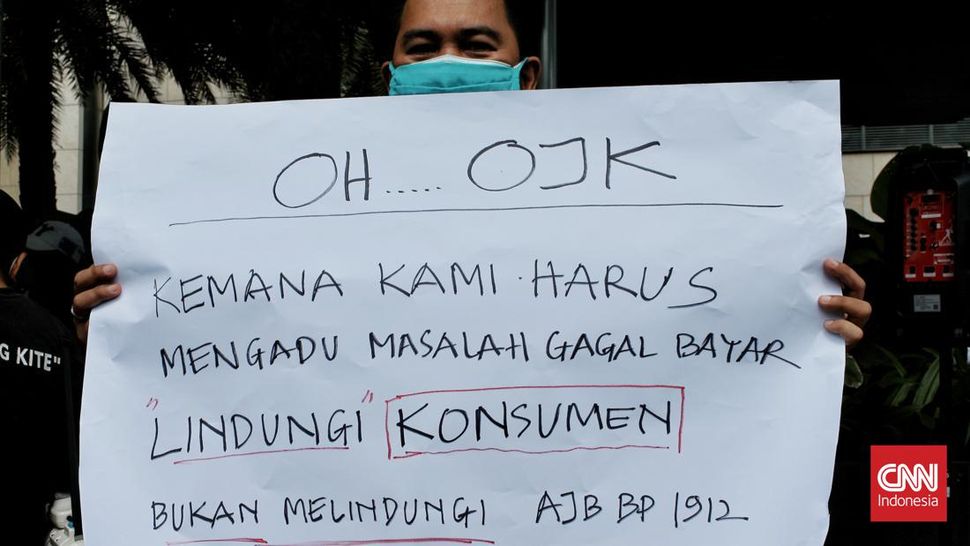 OH...... OJK
KEMANA KAMI HARUS
MENGADU MASALAH GAGAL BAYAR
"LINDUNGI" KONSUMEN
BUKAN MELINDUNGI AJB BP 1912
G KITE"
CNN
Indonesia